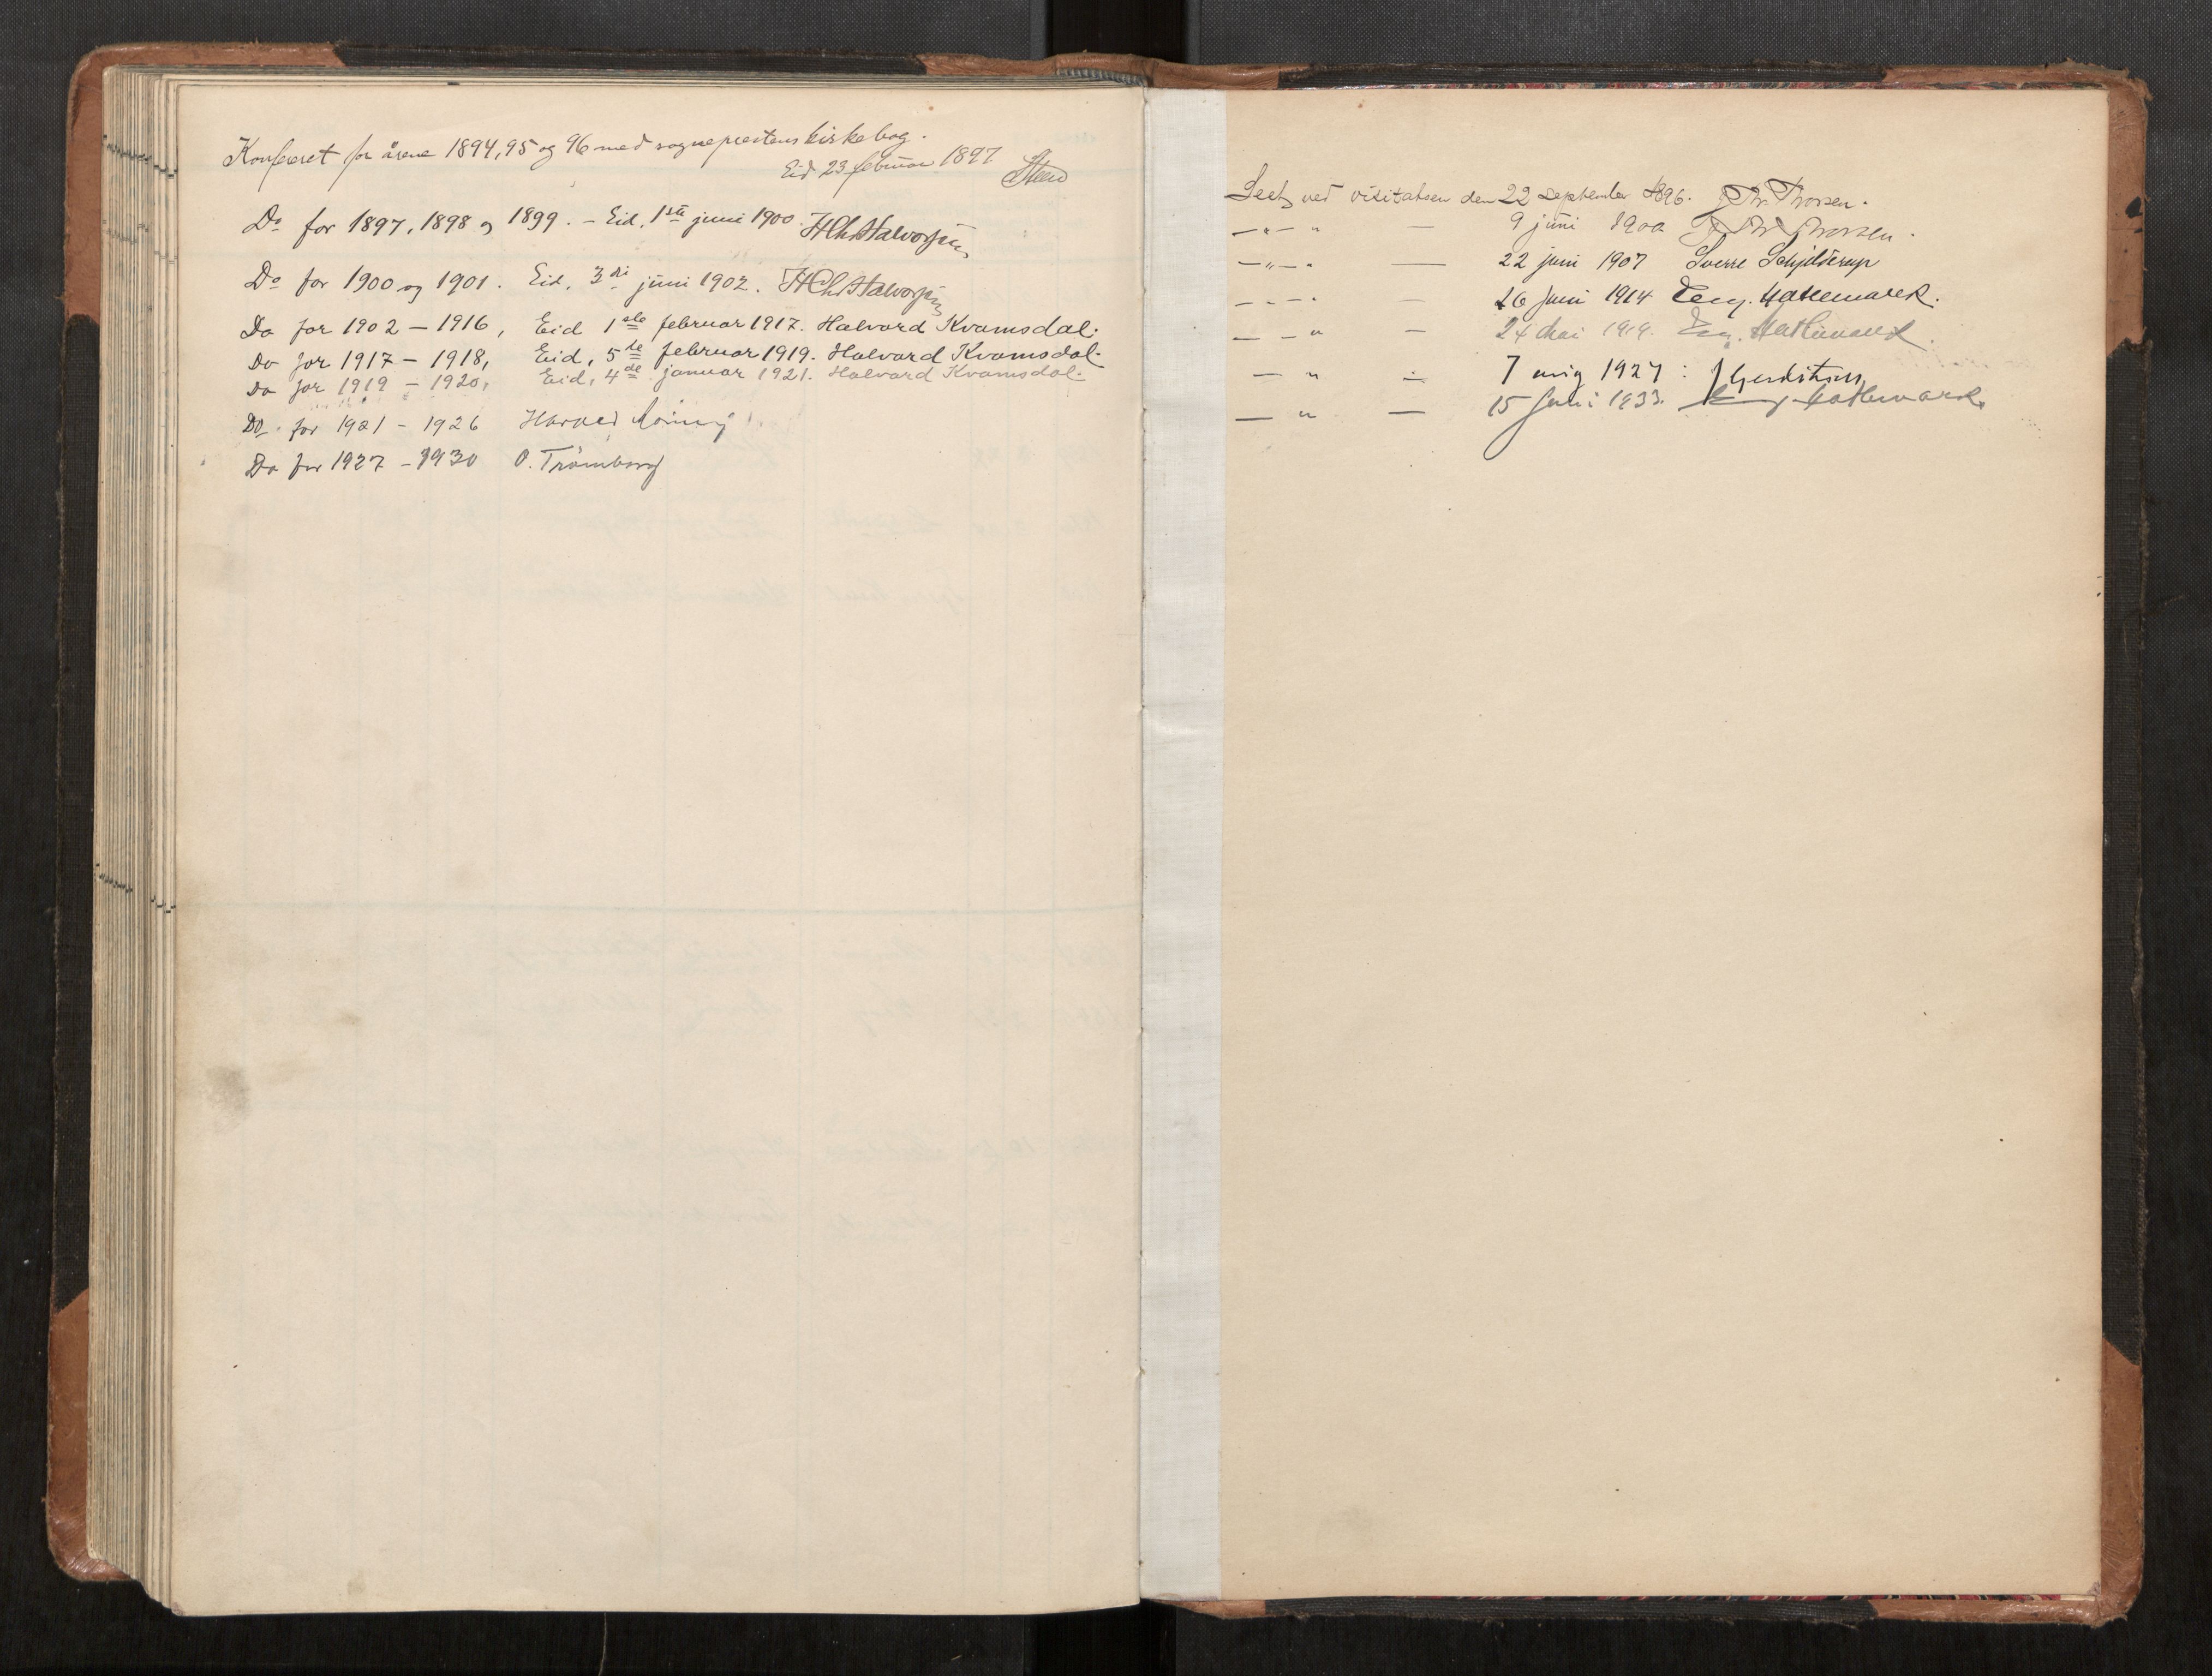 Konfereret for årene 1894, 95 og 96 med sogneprestens kirkebog.
Eid 23 februar 1897
Steen
Do for 1897, 1898 og 1899. – Eid, 1ste juni 1900. HChrHalvorsen
Do for 1900 og 1901. Eid, 3die juni 1902. HChrHalvorsen
Do for 1902 – 1916, Eid 1ste februar 1917. Halvard Kvamsdal.
Do for 1917 – 1918, Eid, 5te februar 1919. Halvard Kvamsdal.
Do for 1919 – 1920, Eid, 4de januar 1921. Halvard Kvamsdal.
Do. for 1921 – 1926 Harald
Do for 1927 – 1930 O. Trømborg
Seet ved visitatsen den 22 september 1896. J Thr. Thorsen.
— „ — „ — 9 juni 1900 J Thr Thorsen.
— „ — „ — 22 juni 1907 Sverre Schjelderup
— „ — „ — 26 juni 1914 Eeg. Hatlemark.
— — „ — 24 Mai 1919. Eeg. Hatlemark.
— „ — 7 aug 1927 :
— „ — 15 juli 1933. Hatlemark.